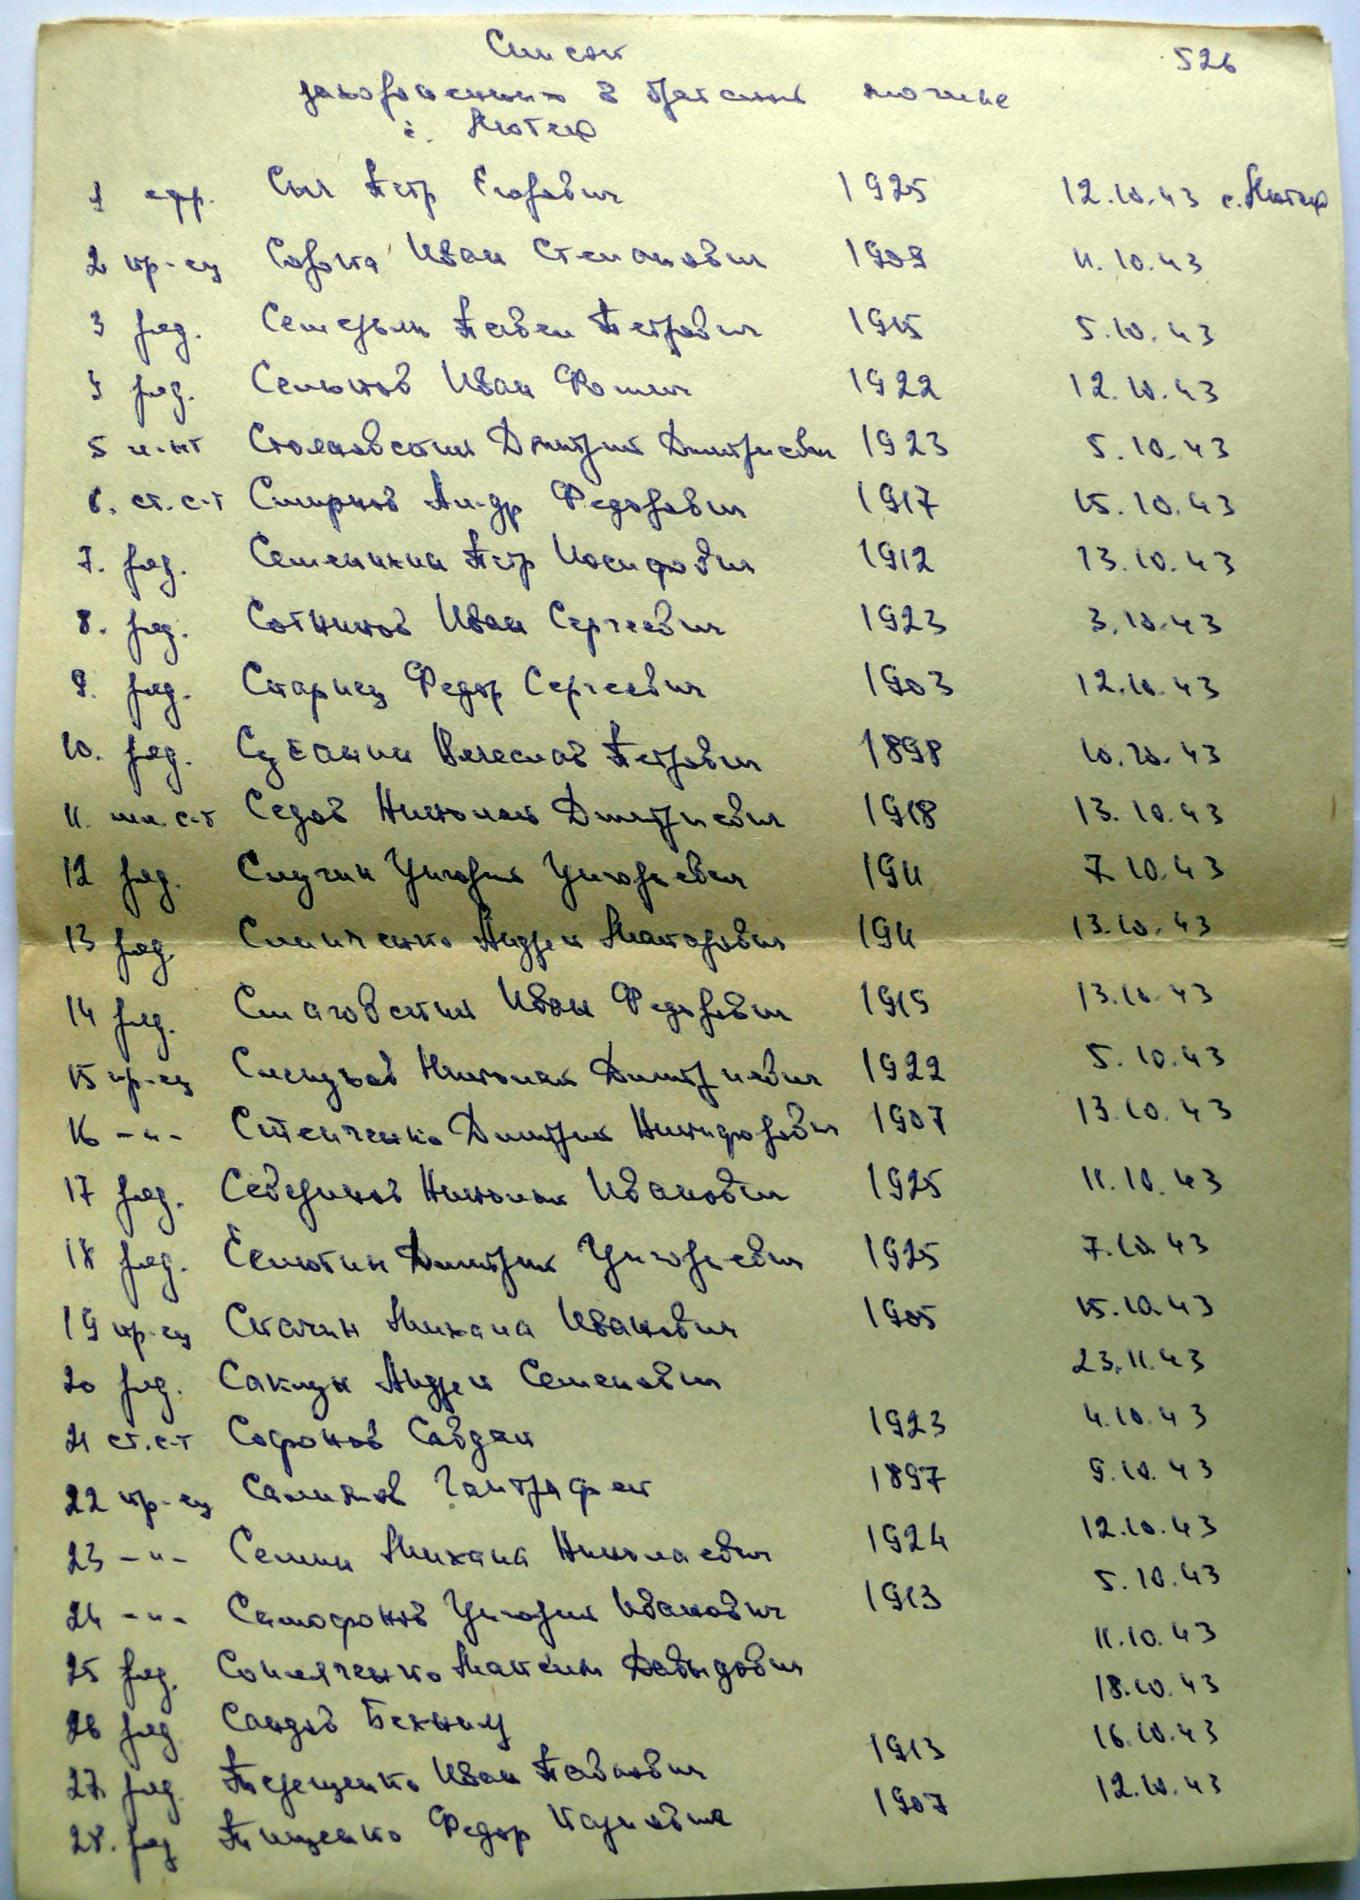 Список
526
захороненных в братской могиле
с. Лютеж
1 ефр. Сыч Петр Егорович 1925 12.10.43 с. Лютеж
2 кр-ец Сорока Иван Степанович 1909 11.10.43
3 ряд. Павел Петрович 1915 5.10.43
4 ряд. Селюков Иван Фомич 1922 12.10.43
5 Дмитрий Дмитриевич 1923 5.10.43
6. ст. с-т Смирнов Ал-др Федорович 1917 15.10.43
7. ряд. Семенихин Петр Иосифович 1912 13.10.43
8. ряд. Сотников Иван Сергеевич 1923 3.10.43
9. ряд. Стариец Федор Сергеевич 1903 12.10.43
10. ряд. Вячеслав Петрович 1898 10.10.43
11. мл. с-т Седов Николай Дмитриевич 1918 13.10.43
12 ряд. Случин Григорий Григорьевич 1911 7.10.43
13 ряд. Андрей Макарович 1911 13.10.43
14 ряд. Иван Федорович 1919 13.10.43
15 кр-ец Николай Дмитриевич 1922 5.10.43
16 -"- Дмитрий Никифорович 1907 13.10.43
17 ряд. Севериков Николай Иванович 1925 11.10.43
18 ряд. Селютин Дмитрий Григорьевич 1925 7.10.43
19 кр-ец Михаил Иванович 1905 15.10.43
20 ряд. Андрей Семенович 23.11.43
21 ст. с-т Софонов Савдан 1923 4.10.43
22 кр-ец 1897 9.10.43
23 -"- Семин Михаил Николаевич 1924 12.10.43
24 -"- Самофонов Григорий Иванович 1913 5.10.43
25 ряд. Максим Давыдович 11.10.43
26 ряд. Саидов 18.10.43
27. ряд. Терещенко Иван Павлович 1913 16.10.43
28. ряд Тищенко Федор Карпович 1907 12.10.43